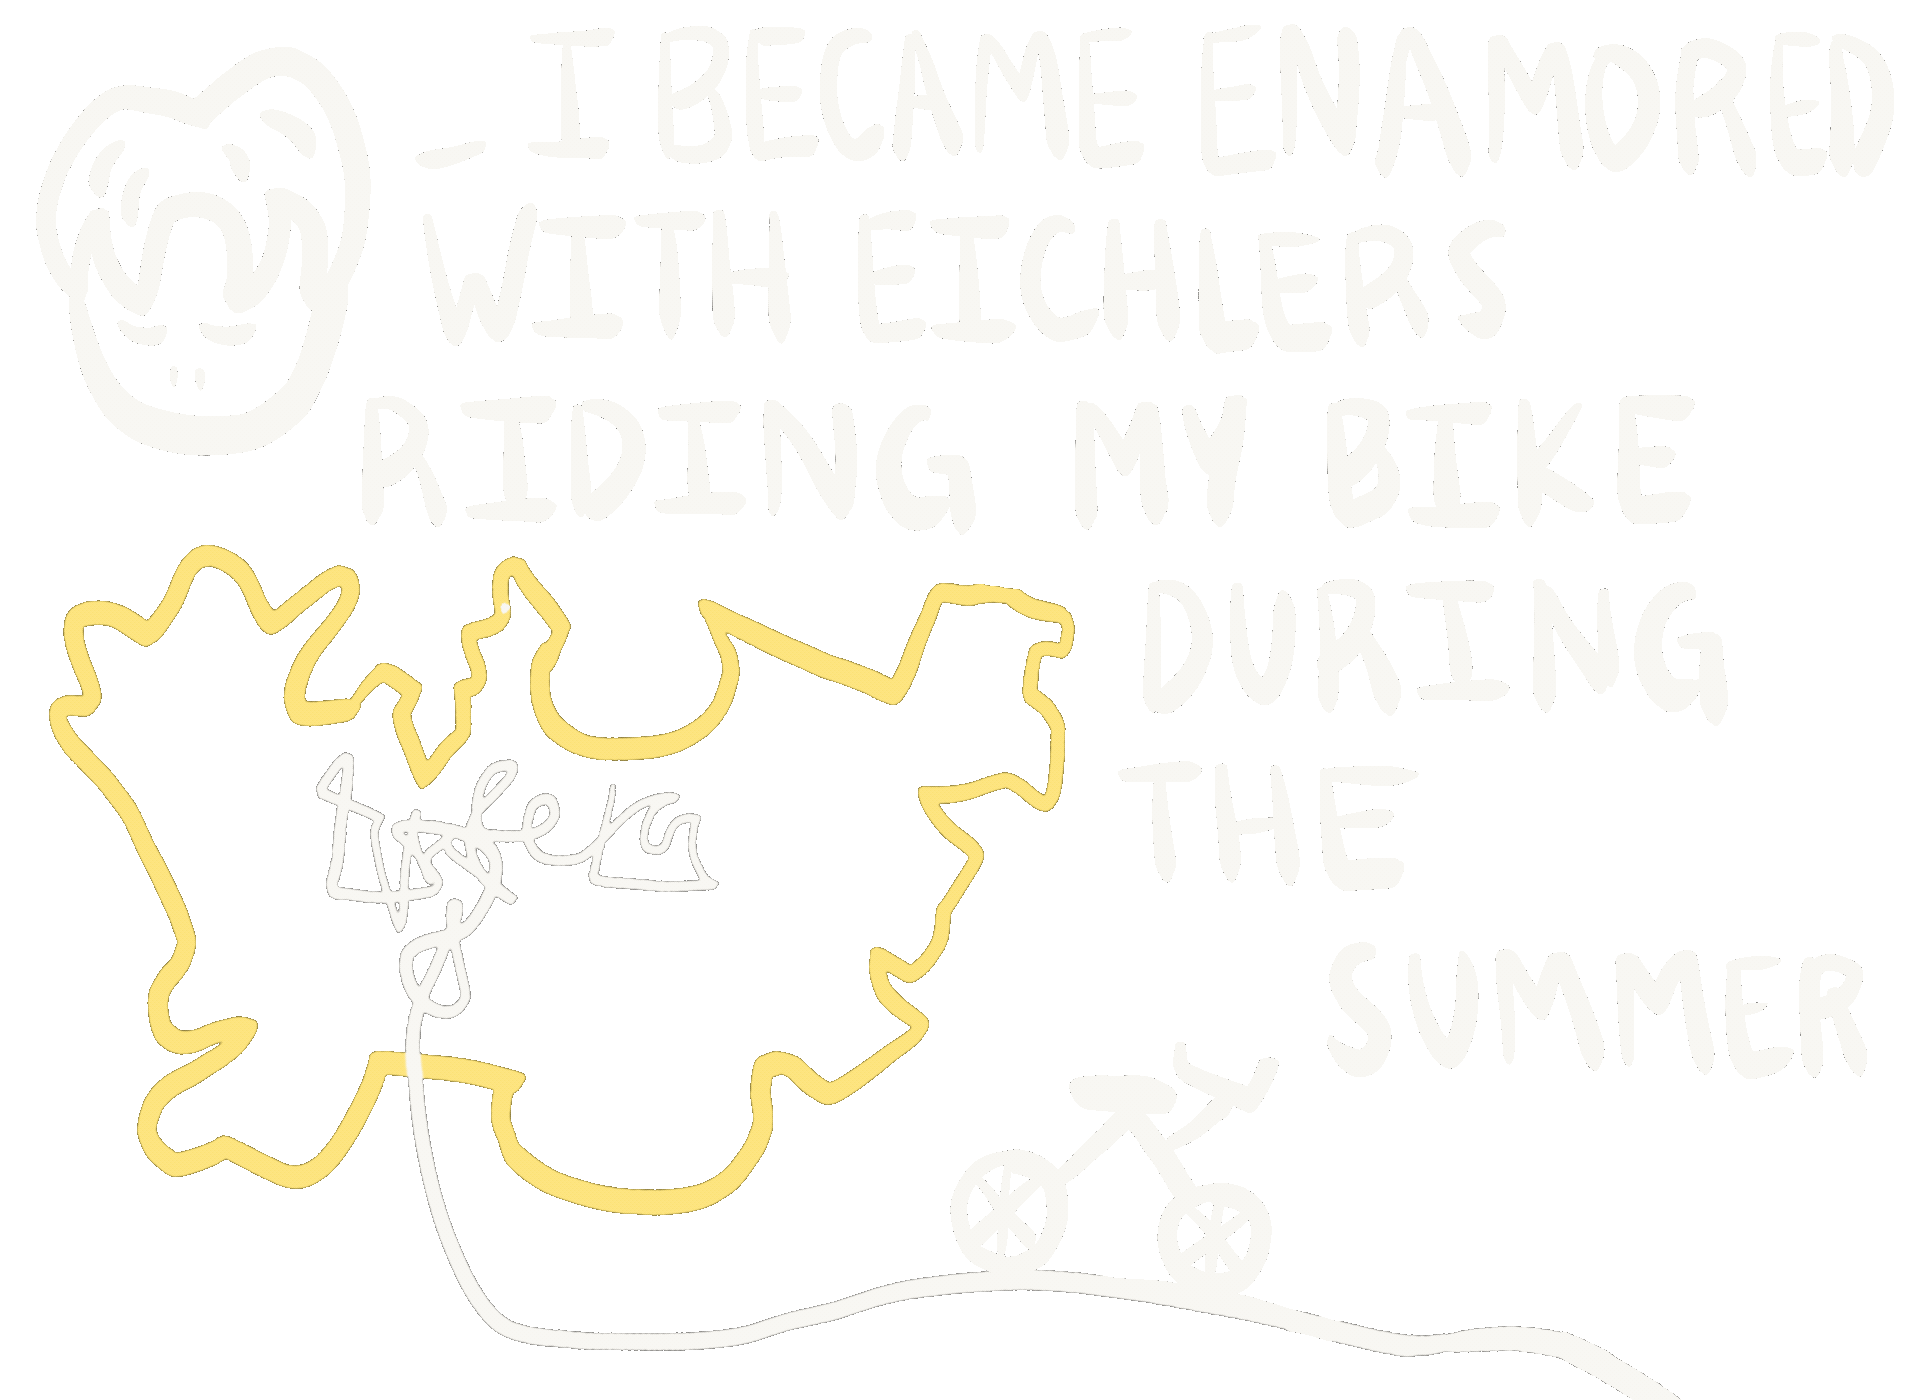 _ I BECAME ENAMORED
WITH EICHLERS
RIDING MY BIKE
DURING
THE
SUMMER